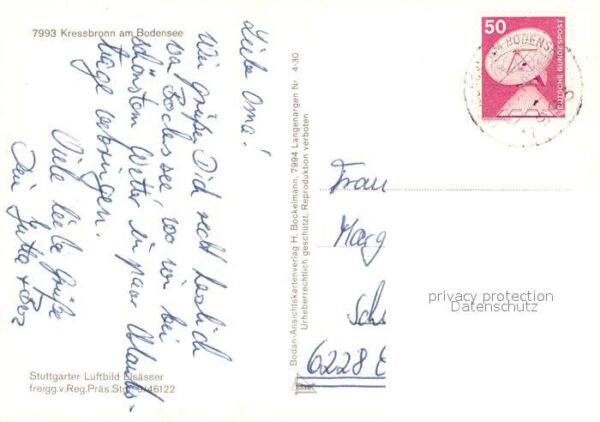 7993 Kressbronn am Bodensee
Liebe Oma!
Wir grüßen Dich recht herzlich
wo wir bei
schönstem Wetter in paar Urlaubs-
tage verbringen.
Viele liebe Grüße
Jutta +
Stuttgarter Luftbild Elsässer
freigg.v.Reg.Präs.Stg. 9/46122
Bodan-Ansichtskartenverlag H. Bockelmann, 7994 Langenargen Nr. 4-30
Urheberrechtlich geschützt. Reproduktion verboten
50
DEUTSCHE BUNDESPOST
BODENS
Frau
Marg
Sch
6228 E
privacy protection
Datenschutz